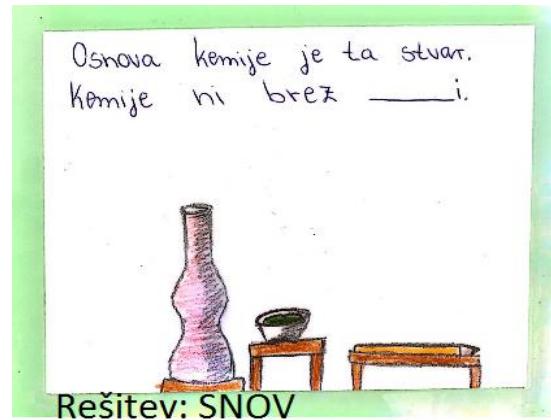 Osnova kemije je ta stvar.
Kemije ni brez _____i.
Rešitev: SNOV